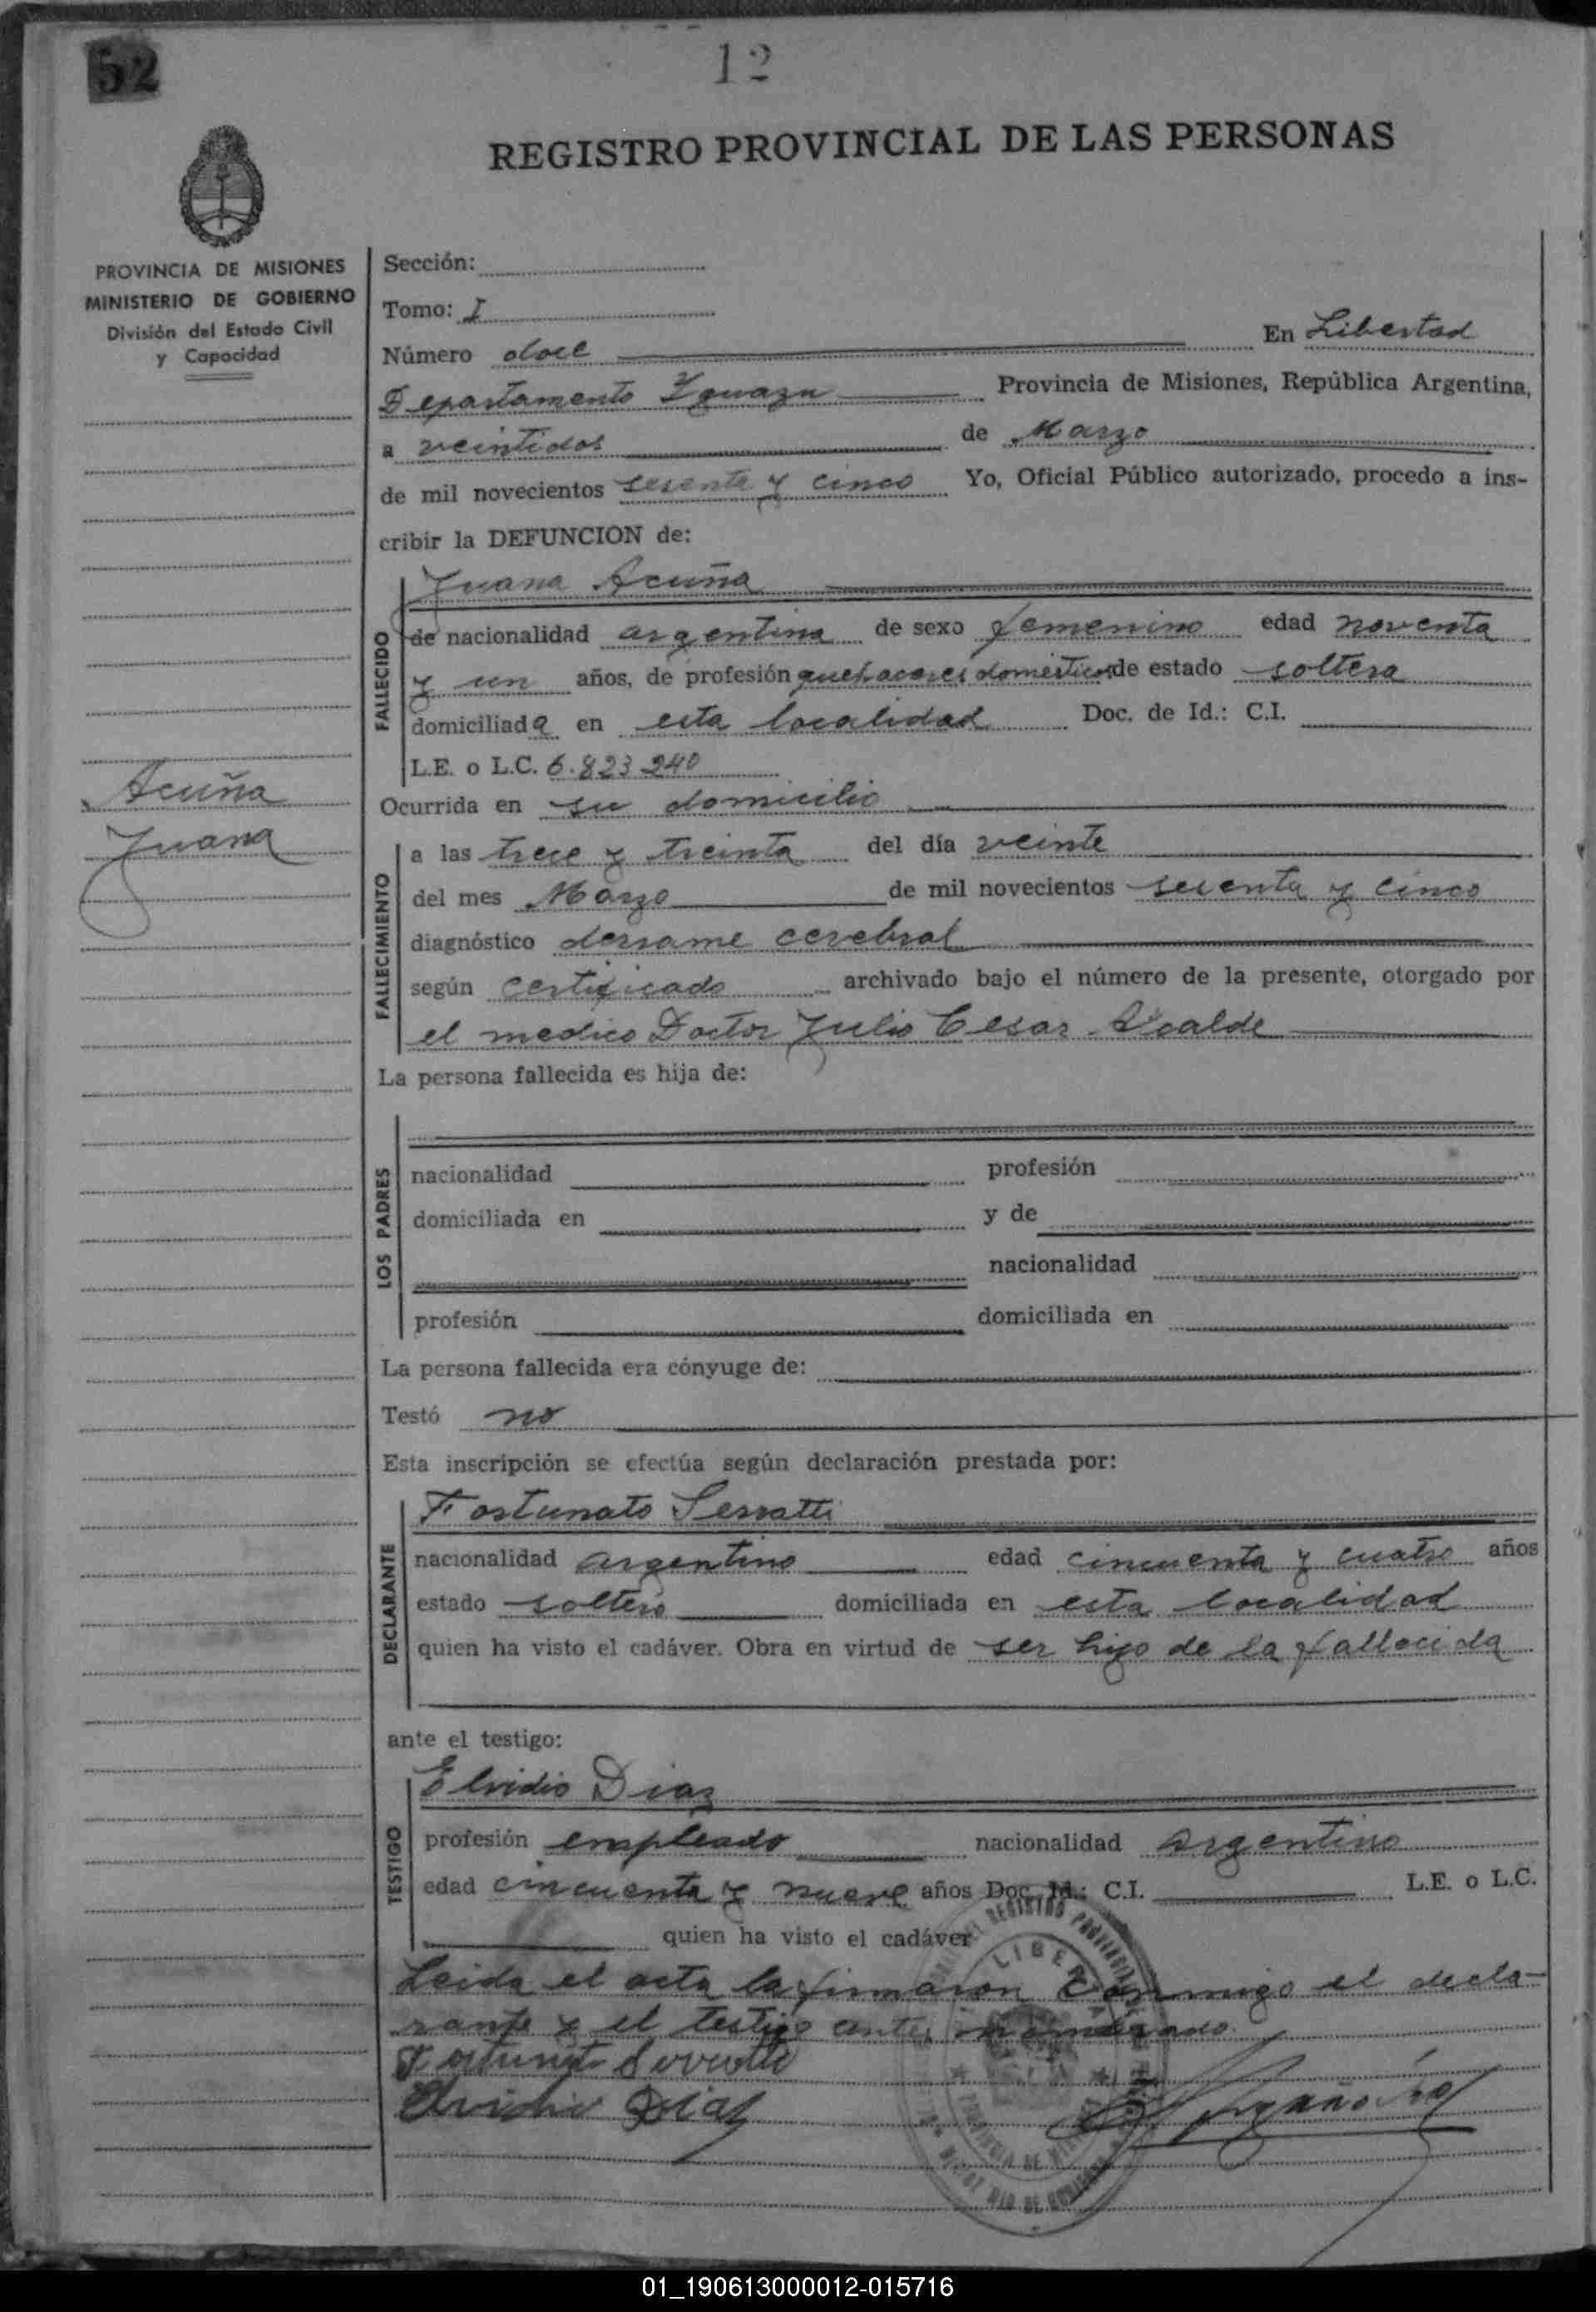 52
12
REGISTRO PROVINCIAL DE LAS PERSONAS
PROVINCIA DE MISIONES
MINISTERIO DE GOBIERNO
División del Estado Civil
y Capacidad
Acuña
Juana
Sección:
Tomo: I
Número doce En Libertad
Departamento Iguazu Provincia de Misiones, República Argentina,
a veintidos de Marzo
de mil novecientos sesenta y cinco Yo, Oficial Público autorizado, procedo a ins-
cribir la DEFUNCION de:
FALLECIDO
Juana Acuña
de nacionalidad argentina de sexo femenino edad noventa
y un años, de profesión quehaceres domésticos de estado soltera
domiciliada en esta localidad Doc. de Id.: C.I.
L.E. o L.C. 6.823240
Ocurrida en su domicilio
FALLECIMIENTO
a las trece y treinta del día veinte
del mes Marzo de mil novecientos sesenta y cinco
diagnóstico derrame cerebral
según certificado archivado bajo el número de la presente, otorgado por
el medico Doctor Julio Cesar Alcalde
La persona fallecida es hija de:
LOS PADRES
nacionalidad profesión
domiciliada en y de
nacionalidad
profesión domiciliada en
La persona fallecida era cónyuge de:
Testó no
Esta inscripción se efectúa según declaración prestada por:
DECLARANTE
Fortunato Serratti
nacionalidad argentino edad cincuenta y cuatro años
estado soltero domiciliada en esta localidad
quien ha visto el cadáver. Obra en virtud de ser hijo de la fallecida
ante el testigo:
TESTIGO
Elvidio Diaz
profesión empleado nacionalidad argentino
edad cincuenta y nueve años Doc. Id.: C.I. L.E. o L.C.
quien ha visto el cadáver
Leida el acta la firmaron conmigo el decla-
rante y el testigo antes nombrado.
Fortunato Serratti
Elvidio Diaz
01_190613000012-015716